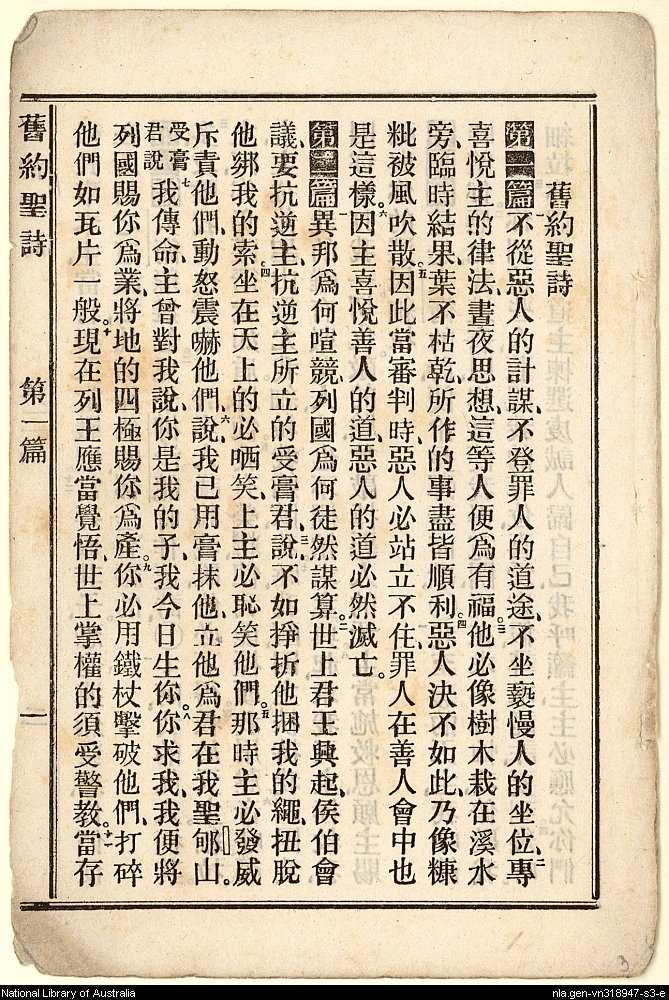 舊約聖詩
第一篇 一不從惡人的計謀、不登罪人的道途、不坐褻慢人的坐位、二專
喜悅主的律法、晝夜思想、這等人便爲有福。三他必像樹木栽在溪水
旁、臨時結果、葉不枯乾、所作的事盡皆順利。四惡人決不如此、乃像糠
粃被風吹散。五因此當審判時、惡人必站立不住、罪人在善人會中也
是這樣。六因主喜悅善人的道、惡人的道必然滅亡。
第二篇 一異邦爲何喧競、列國爲何徒然謀算。二世上君王興起、侯伯會
議、要抗逆主、抗逆主所立的受膏君、說、三不如掙折他捆我的繩、扭脫
他綁我的索。四坐在天上的必哂笑、上主必恥笑他們。五那時主必發威
斥責他們、動怒震嚇他們、說、六我已用膏抹他、立他爲君在我聖郇山。
受膏君說 七我傳命、主曾對我說、你是我的子、我今日生你。八你求我、我便將
列國賜你爲業、將地的四極賜你爲產。九你必用鐵杖擊破他們、打碎
他們如瓦片一般。十現在列王應當覺悟、世上掌權的須受警教。十一當存
舊約聖詩 第一篇 一
3
National Library of Australia
nla.gen-vn318947-s3-e